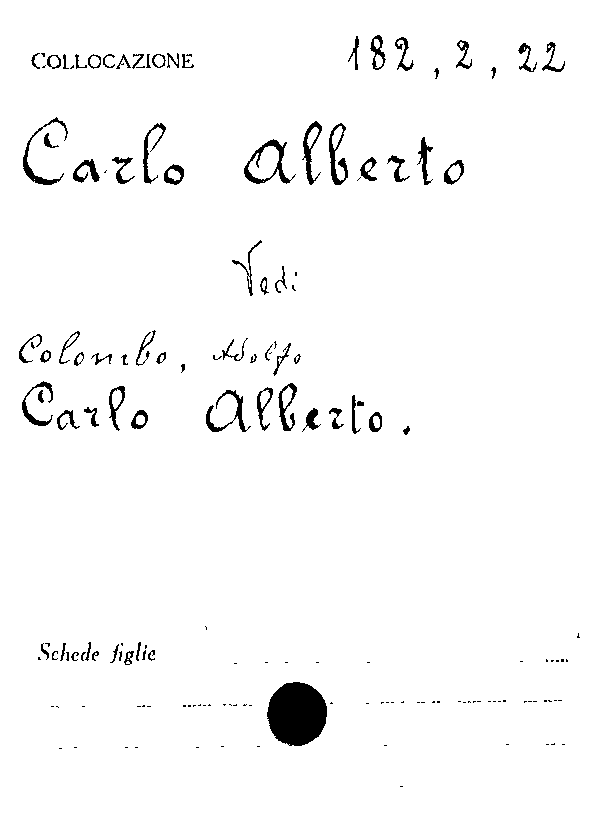 COLLOCAZIONE 182, 2, 22
Carlo Alberto
Vedi
Colombo, Adolfo
Carlo Alberto.
Schede figlie